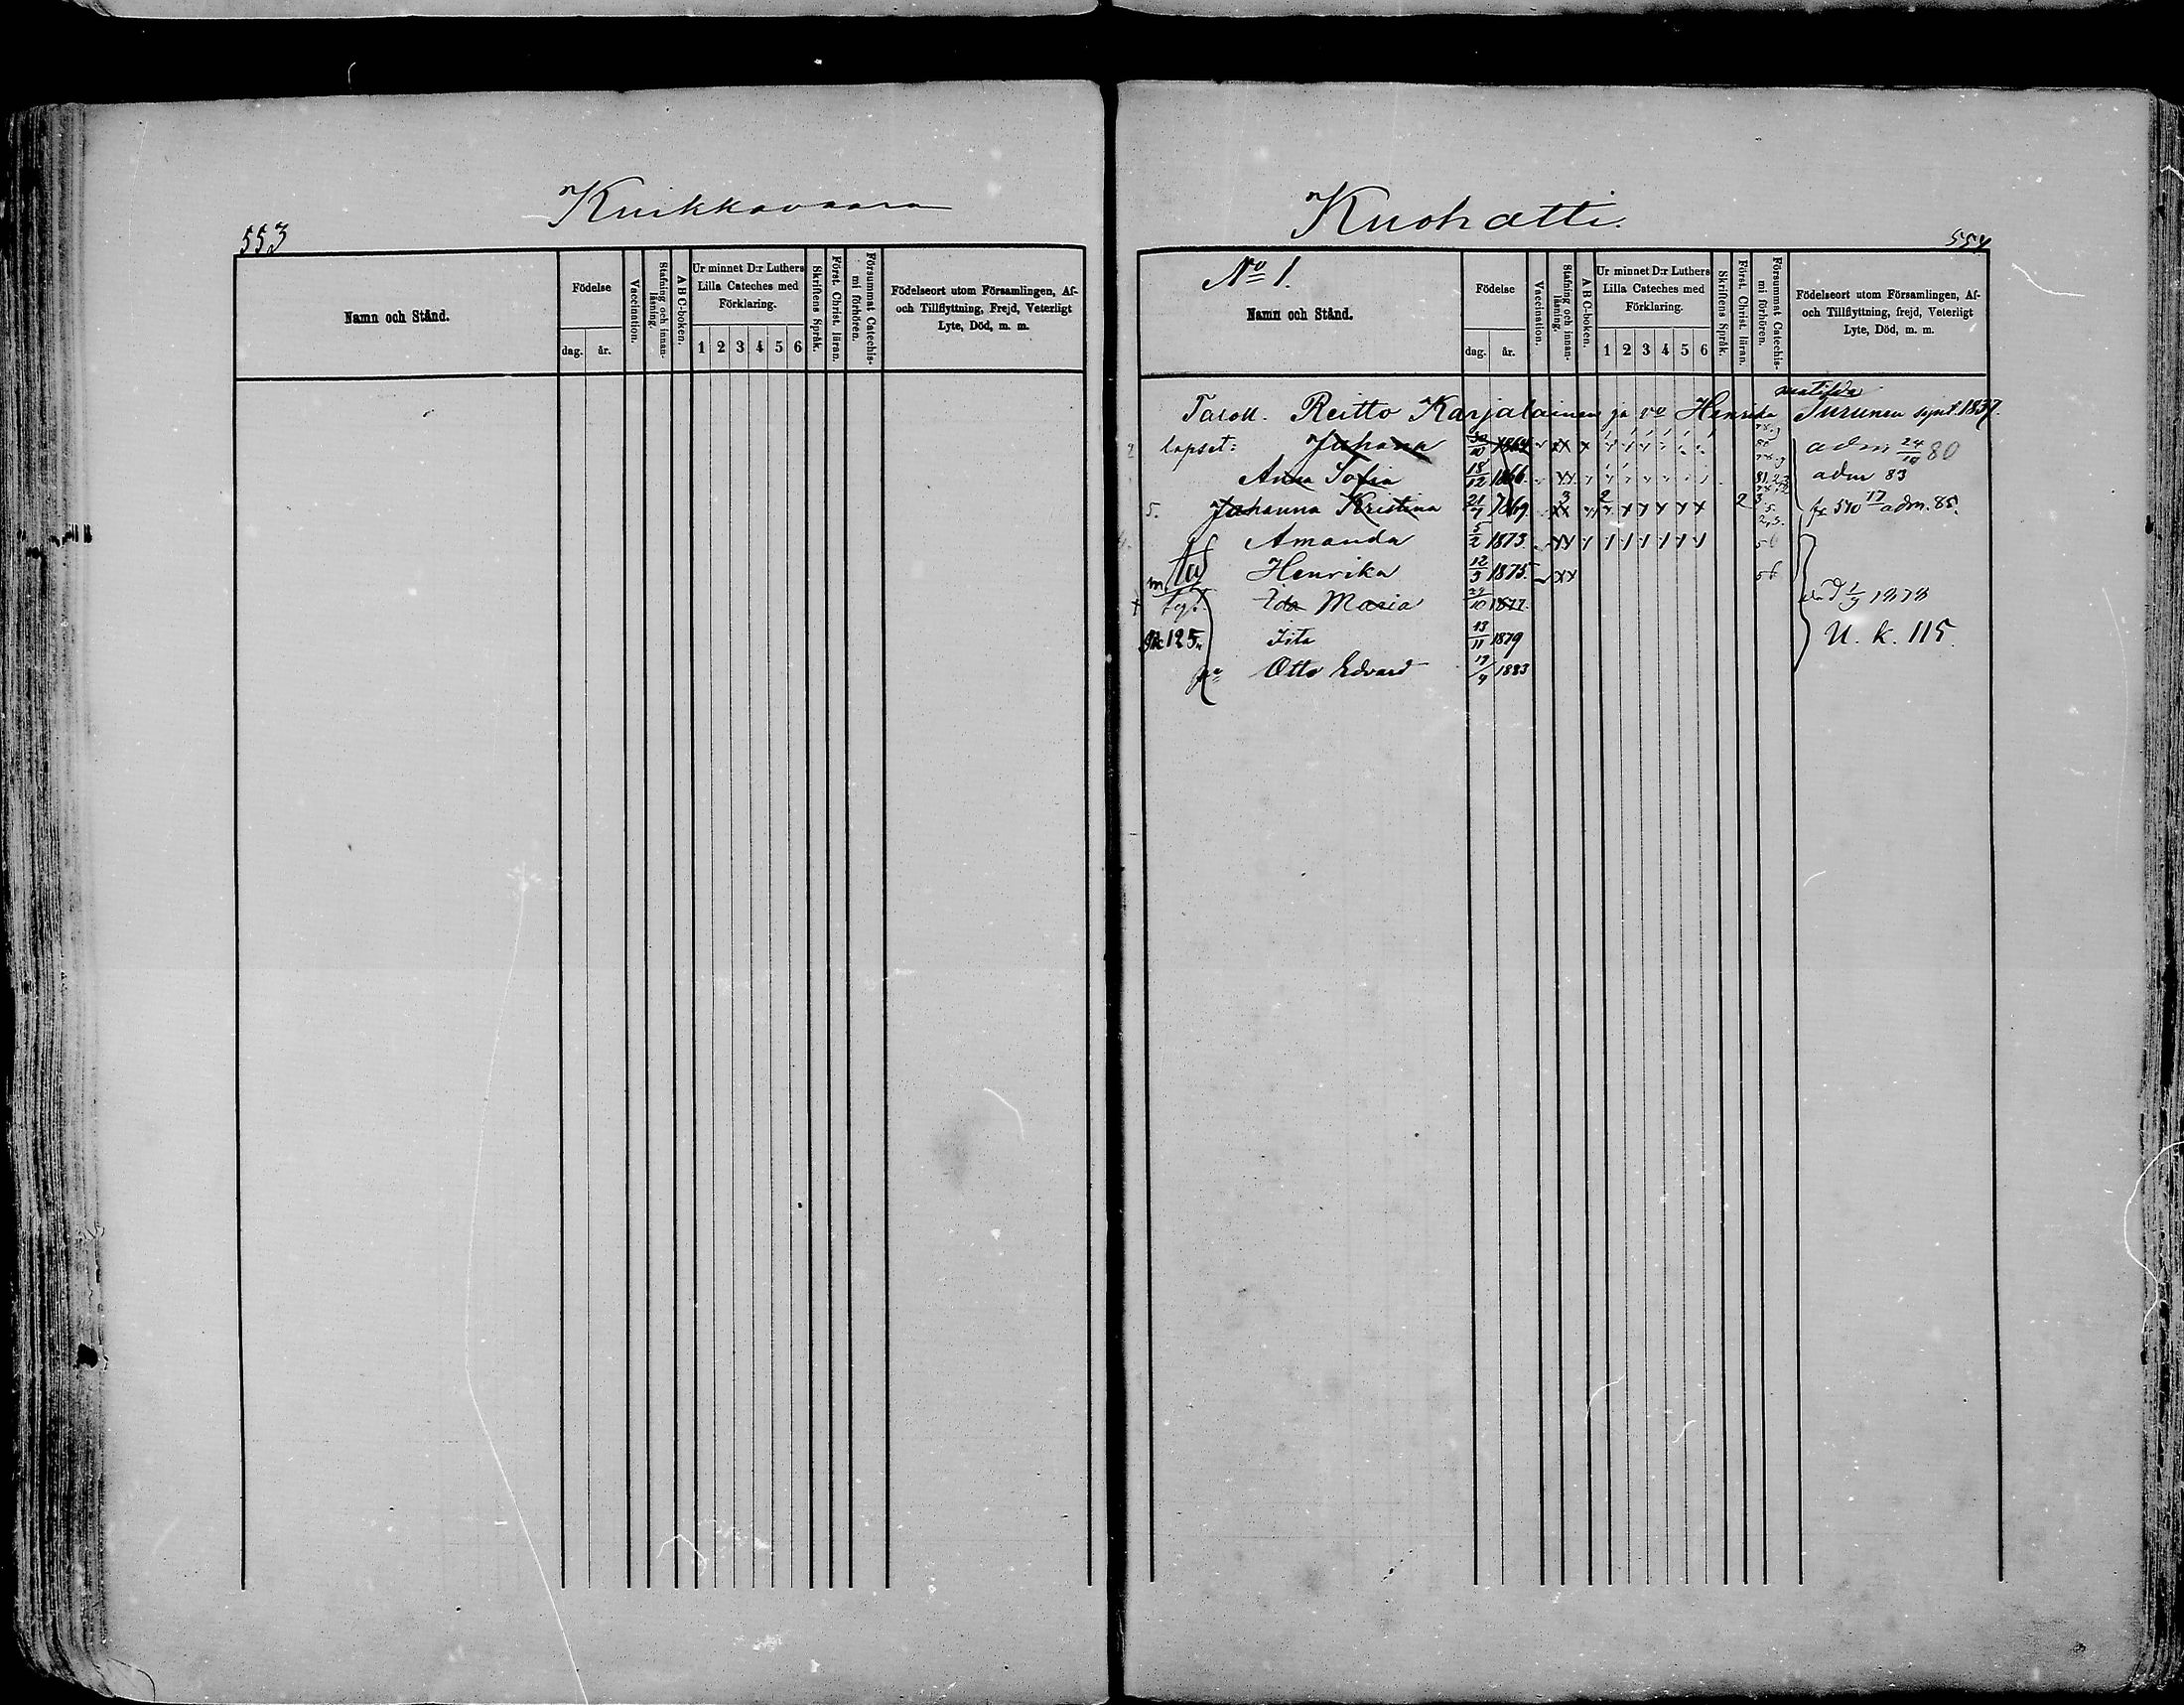 Kuikkavaara
553
Namn och Stånd.
Födelse
dag.
år.
Vaccination.
Stafning och innanläsning.
A B C-boken.
Ur minnet D:r Luthers
Lilla Cateches med
Förklaring.
1 2 3 4 5 6
Skriftens Språk.
Först. Christ. läran.
Försummat Catechismi förhören.
Födelseort utom Församlingen, Af-
och Tillflyttning, Frejd, Veterligt
Lyte, Död, m. m.
Kuohatti.
554
No 1.
Namn och Stånd.
Födelse
dag.
år.
Vaccination.
Stafning och innanläsning.
A B C-boken.
Ur minnet D:r Luthers
Lilla Cateches med
Förklaring.
1 2 3 4 5 6
Skriftens Språk.
Först. Christ. läran.
Försummat Catechismi förhören.
Födelseort utom Församlingen, Af-
och Tillflyttning, frejd, Veterligt
Lyte, Död, m. m.
matilda
Reitto Karjalainen ja vo Henrika Turunen synt. 1837.
lapset: Johana 30/10 1864 adm 24/10 80
Anna Sofia 18/12 1866 adm 83
5. Johanna Kristina 21/7 1869 3 2 2 3 adm. 85.
Amanda 5/2 1873
Henrika 12/3 1875
Ida Maria 1877 1878
125. Iita 13/11 1879 U. k. 115.
Otto Edvard 19/9 1883